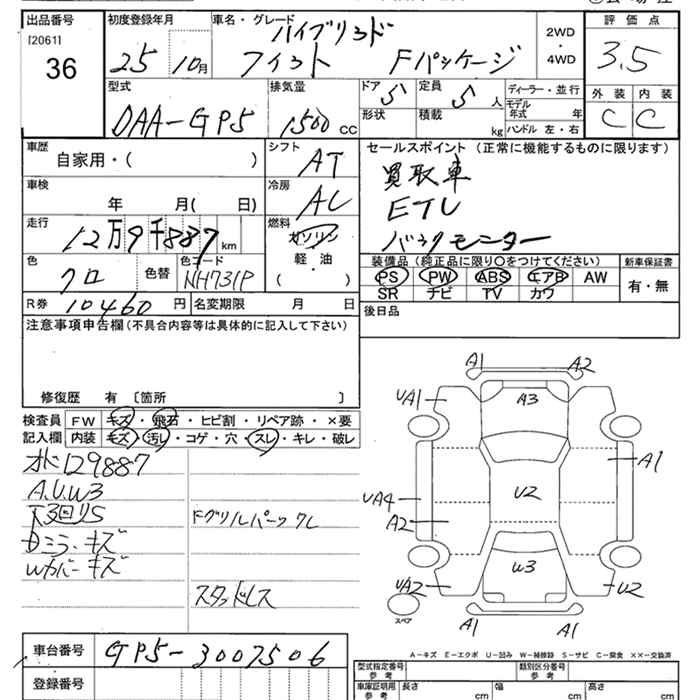 出品番号 初度登録年月 車名・グレード 評価点
[2061] 36
25 10月
ハイブリッド
フィット Fパッケージ
2WD ・ 4WD
3.5
型式 排気量 ドア 定員 ディーラー・並行 外装 内装
DAA-GP5 1500 CC 5 5 人 モデル年式 年 C C
形状 積載 kg ハンドル 左・右
車歴 シフト セールスポイント (正常に機能するものに限ります)
自家用・( ) AT
買取車
車検 冷房
年 月( 日) AC
ETC
走行 燃料
12万9千887 km ガソリン
バックモニター
軽・油
( )
色 色替 色コード
クロ NH731P
装備品 (純正品に限り○をつけてください) 新車保証書
PS PW ABS エアB AW 有・無
SR ナビ TV カワ
R券 10460 円 名変期限 月 日
後日品
注意事項申告欄 (不具合内容等は具体的に記入して下さい)
修復歴 有 〔箇所 〕
検査員記入欄 FW キズ・飛石・ヒビ割・リペア跡・×要
内装 キズ・汚レ・コゲ・穴・スレ・キレ・破レ
129887
A.U.W3
下3回りS
Dミラーキズ
Wカバーキズ
Fグリルパーツ欠
スタッドレス
A1 A2
UA1 A3
A1
UA4 U2
A2
UA2 W3 U2
スペア A1 A1
A-キズ E-エクボ U-凹み W-補修跡 S-サビ C-腐食 ××-交換済
車台番号 GP5-3007506
登録番号
型式指定番号 参考 類別区分番号 参考
車庫証明用 参考 長さ cm 幅 cm 高さ cm